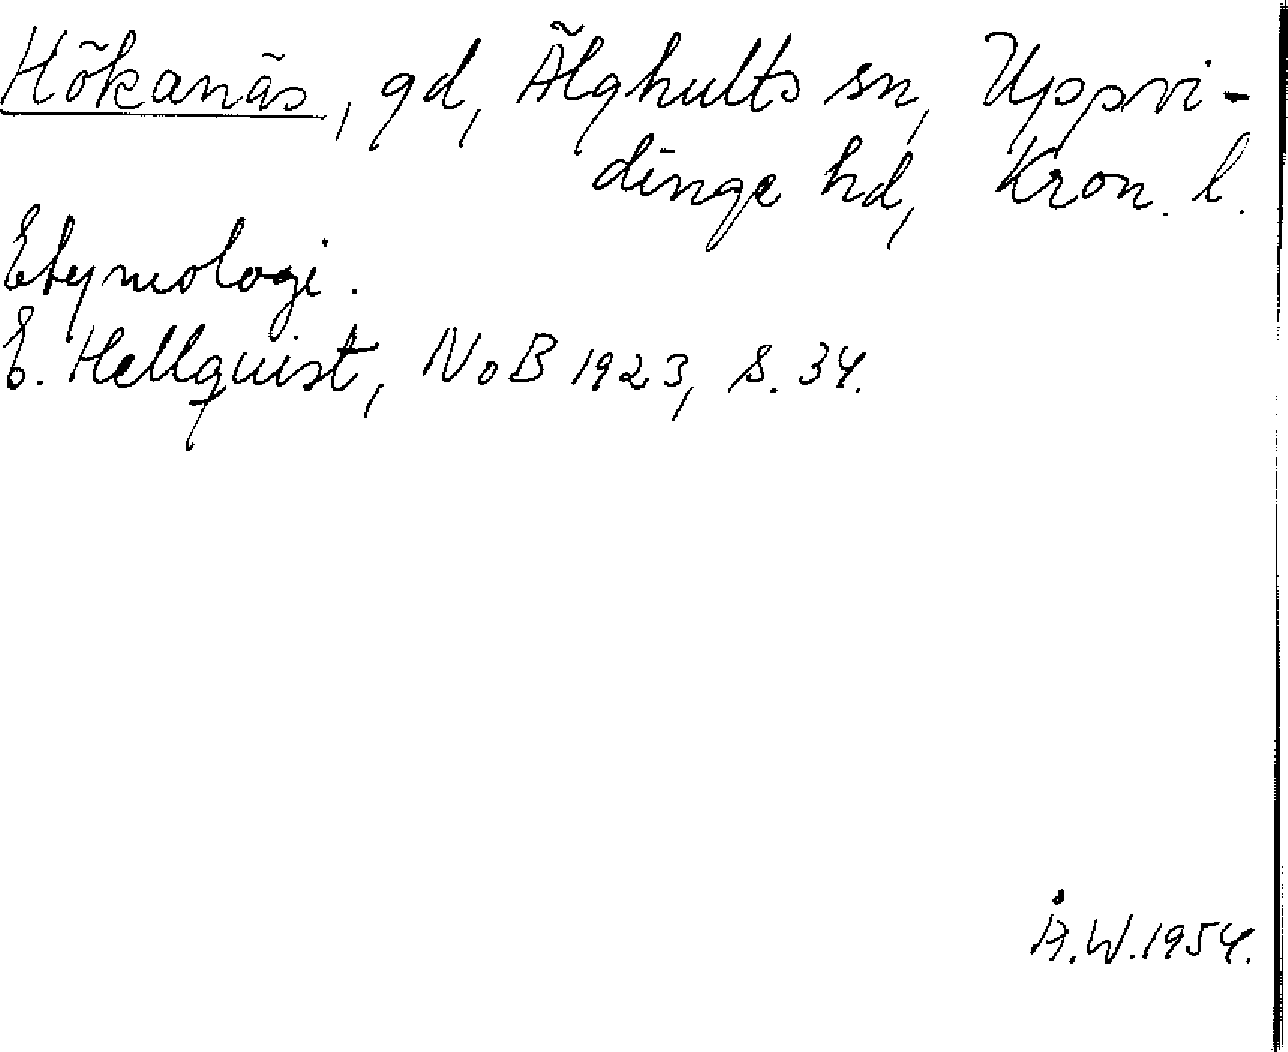 Hökanäs, gd, Älghults sn, Uppvi-
dinge hd, Kron. l.
Etymologi.
E. Hellquist, NoB 1923, s. 34.
Å.W. 1954.